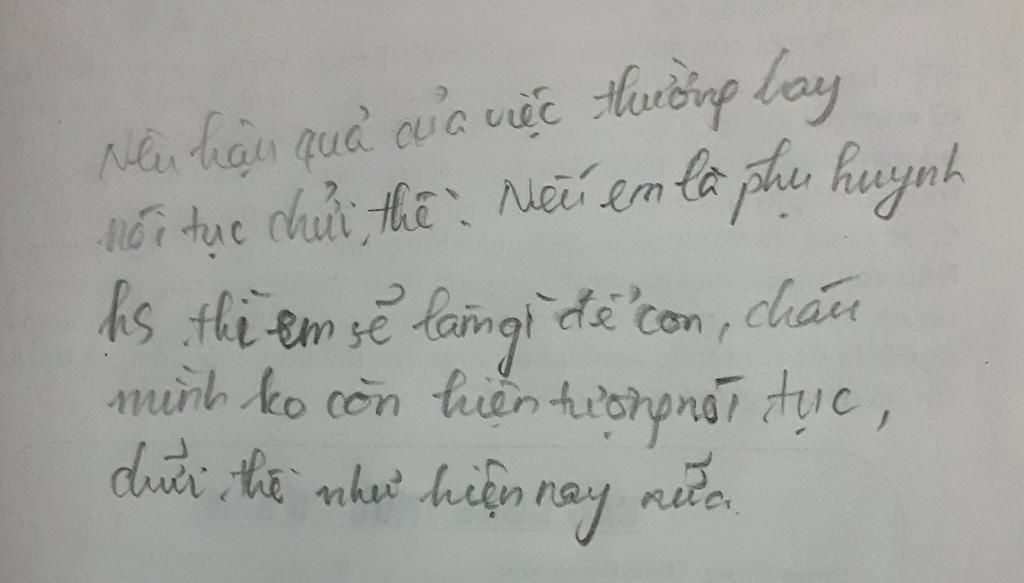 Nêu hậu quả của việc thường hay
nói tục chửi, thề. Nếu em là phụ huynh
hs thì em sẽ làm gì để con, cháu
mình ko còn hiện tượng nói tục,
chửi, thề như hiện nay nữa.